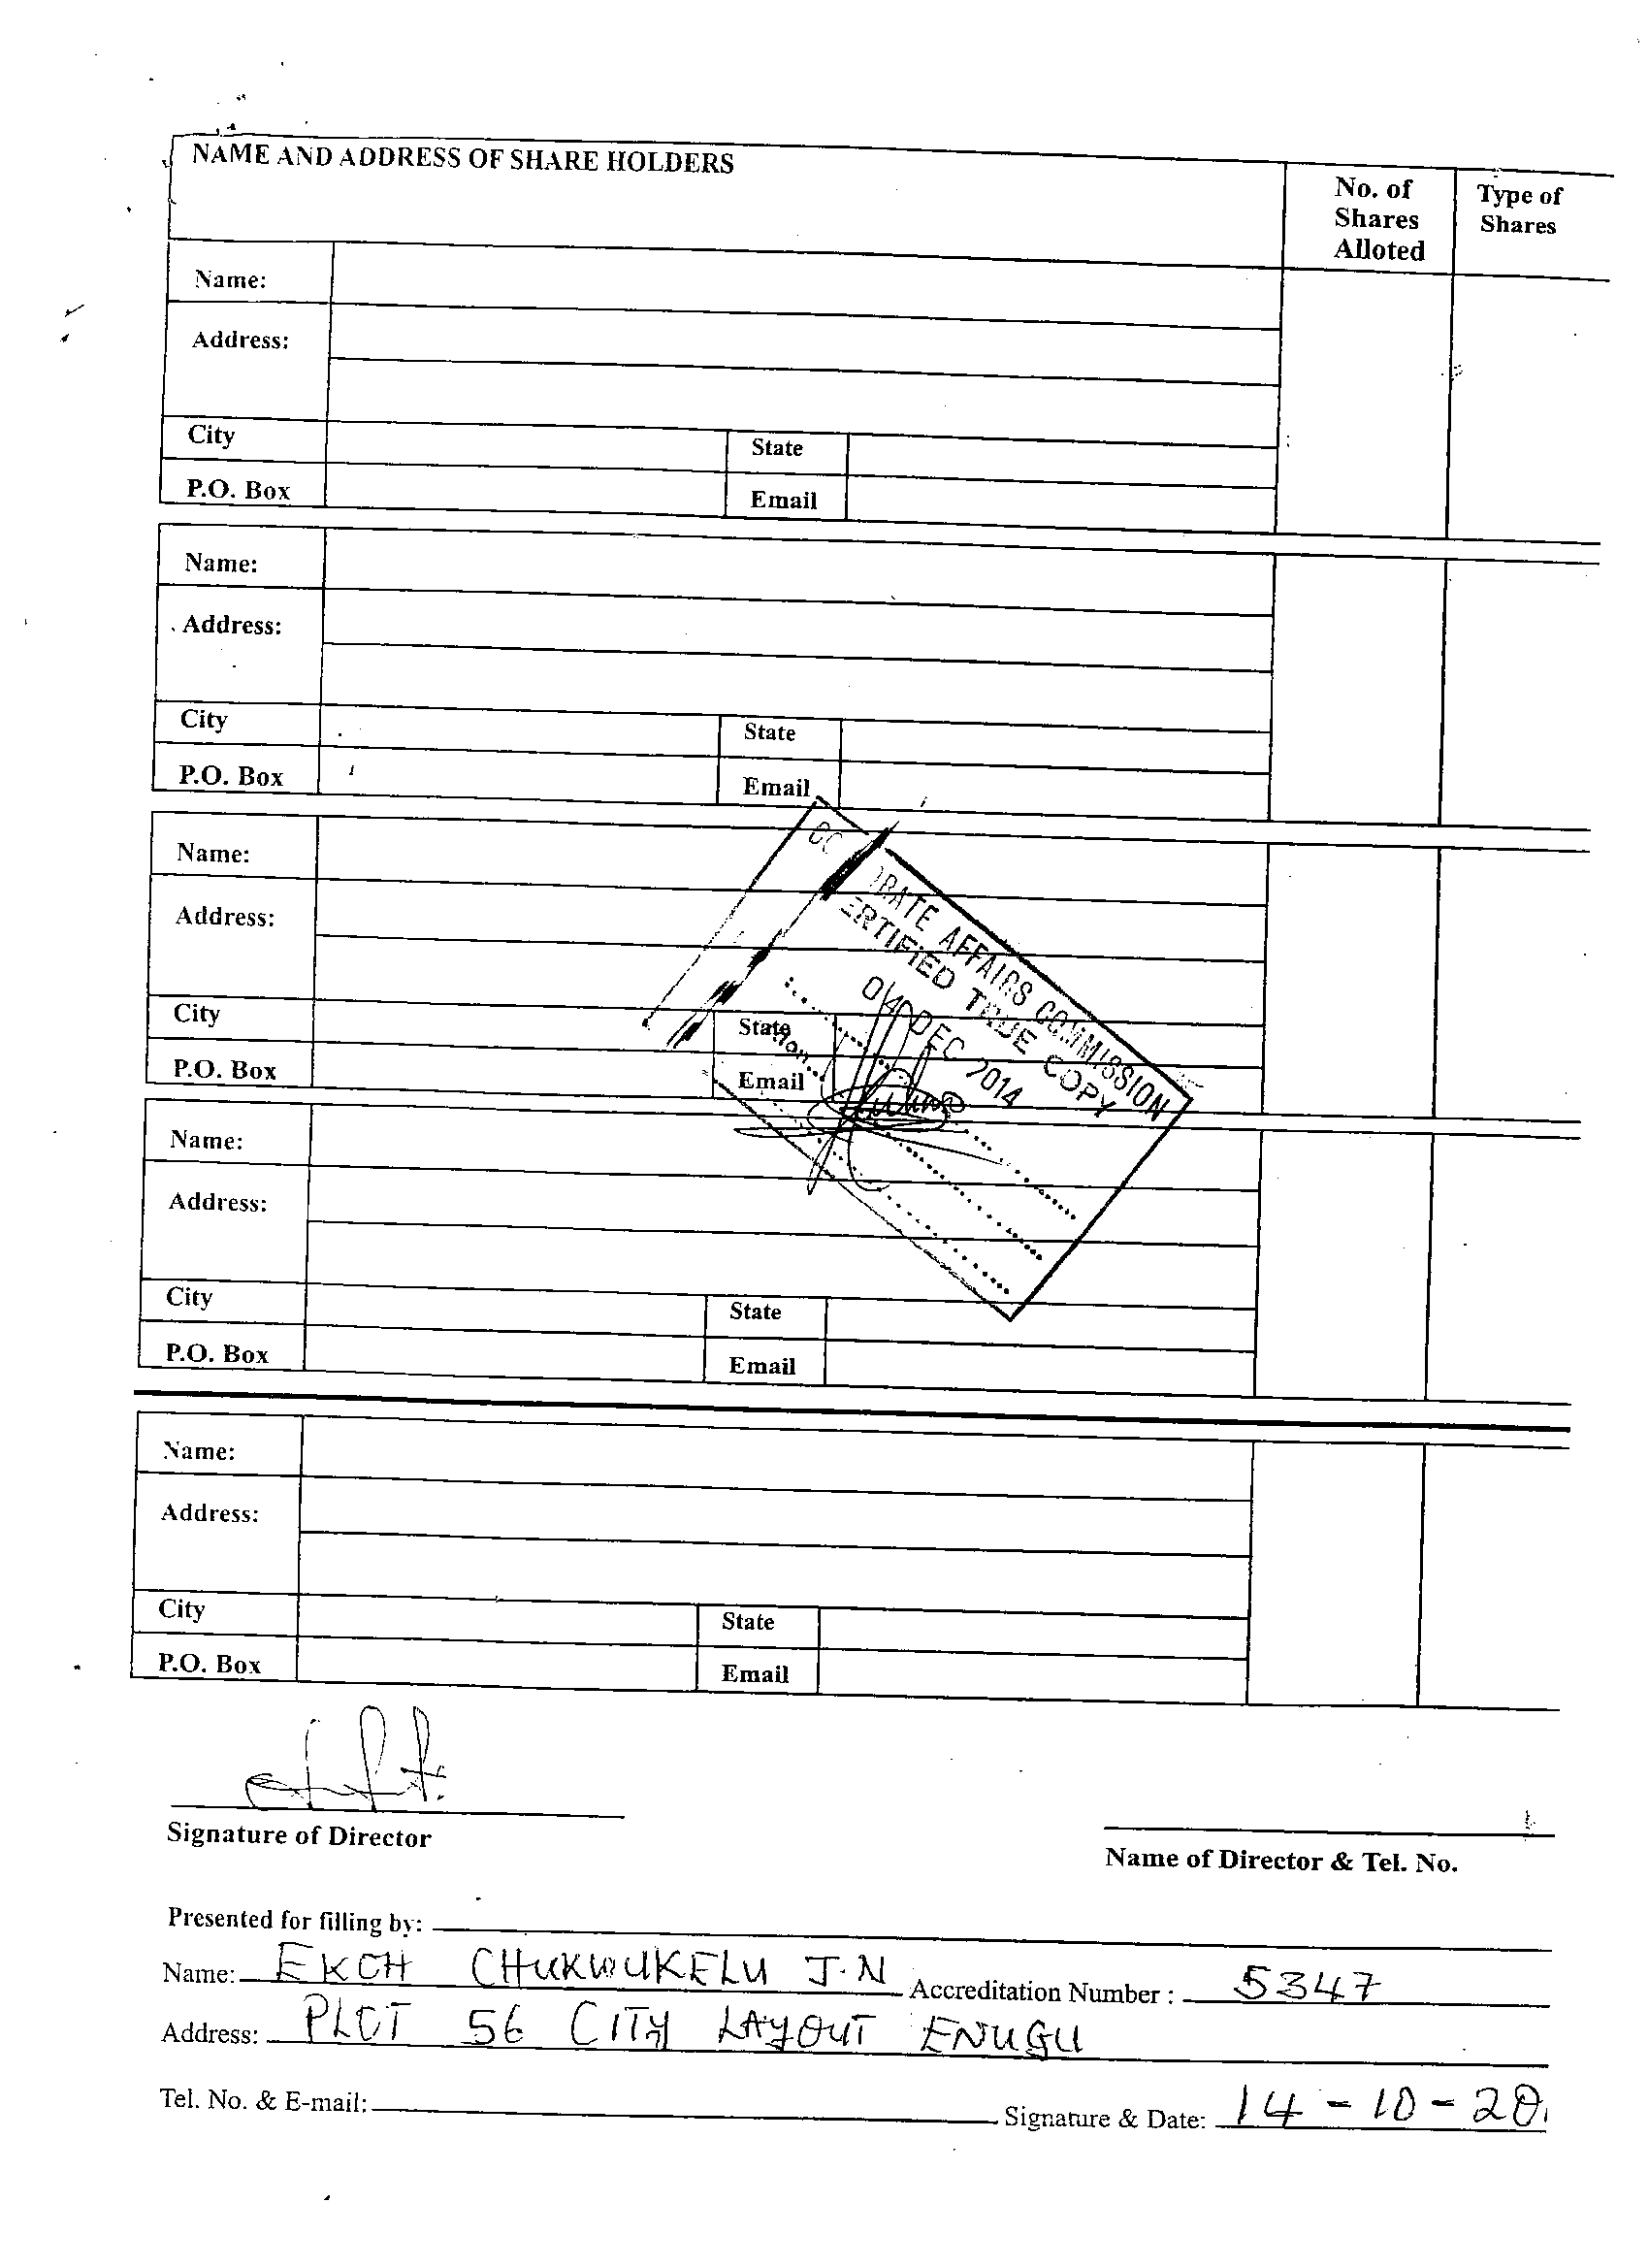 NAME AND ADDRESS OF SHARE HOLDERS
No. of Shares Alloted
Type of Shares
Name:
Address:
City State
P.O. Box Email
Name:
Address:
City State
P.O. Box Email
Name:
Address:
City State
P.O. Box Email
RATE AFFAIRS COMMISSION
ERTIFIED TRUE COPY
04 DEC 2014
Name:
Address:
City State
P.O. Box Email
Name:
Address:
City State
P.O. Box Email
Signature of Director
Name of Director & Tel. No.
Presented for filling by:
Name: EKOH CHUKWUKELU J.N Accreditation Number : 5347
Address: PLOT 56 CITY LAYOUT ENUGU
Tel. No. & E-mail: Signature & Date: 14-10-20